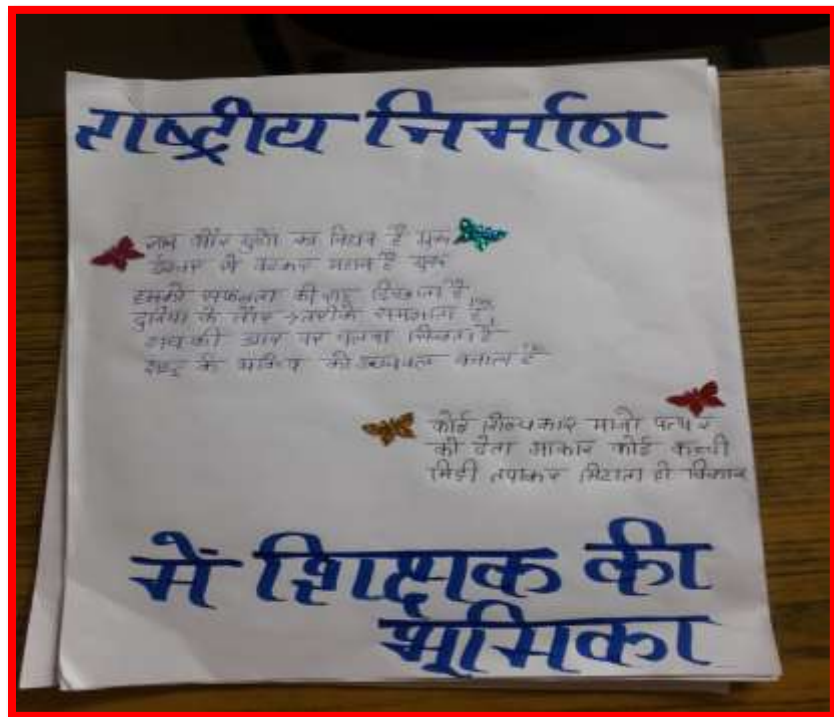 राष्ट्रीय निर्माण
ज्ञान और गुणों का है गुरू
ईश्वर से बढकर महान है गुरू
हमको सफलता की राह दिखाता है,
दुनिया के तौर तरीके समझाता है,
सच की आर पर चलना सिखाता है
राष्ट्र के भविष्य को उज्जवल बनाता है
कोई शिल्पकार मानो पत्थर
को देता आकार कोई कच्ची
मिट्टी तपाकर मिटाता हो विकार
में शिक्षक की
भूमिका